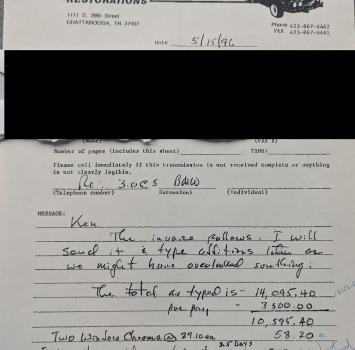 RESTORATIONS
1171 E. 39th Street
CHATTANOOGA, TN 37407
Phone 423-867-4462
FAX 423-867-4461
Date 5/15/96
Number of pages (includes this sheet) TIME:
Please call immediately if this transmission is not received complete or anything
is not clearly legible.
Re: 3.0CS BMW
(Telephone number) Extension) (Individual)
MESSAGE:
Ken
The invoice follows. I will
send it & type additions later as
we might have overlooked something.
The total as typed is - 14,095.40
pre pay " 3500.00
10,595.40
Two Window Chromes @ 29.10 ea 58.20
3.5 Days